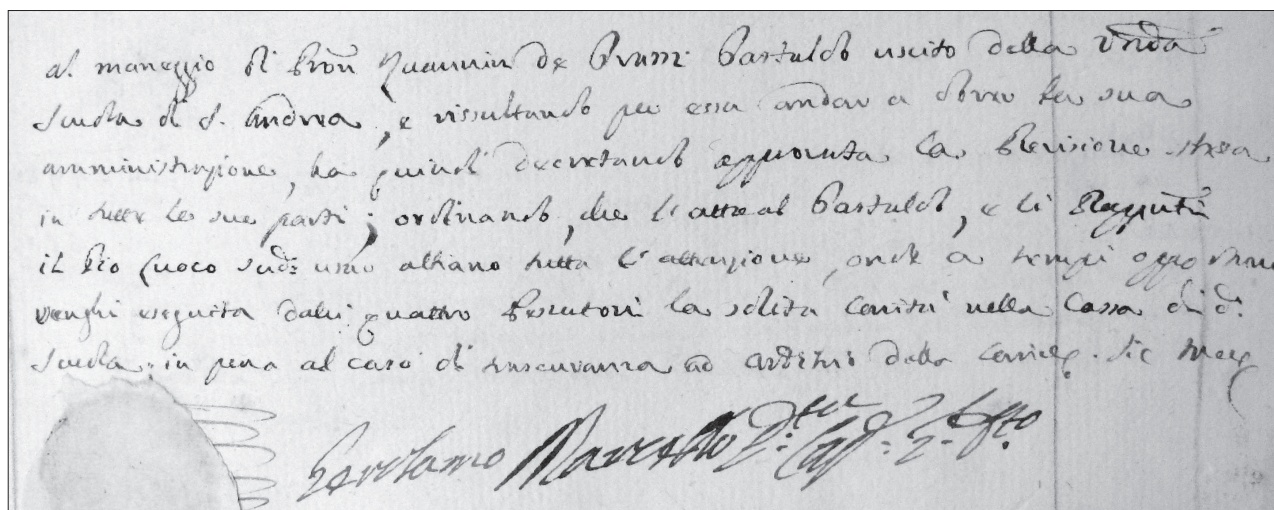 al maneggio di Bron Zuannin de Brussi Gastaldo uscito della Vnda
Scuola di S. Andrea, e rissultando per essa andar a dover la sua
amministrazione, ha quindi decretando approvata la Revisione stessa
in tutte le sue parti; ordinando, che l'attual Gastaldo, e li
il Pio Luoco sud: abbiano tutta l'attenzione, onde a tempi
venghi eseguita dalli quattro Essecutori la solita carità nella Cassa di d:
Scuola; in pena al caso di trascuranza ad arbitrio della Carica. Sic
Gerolamo Marcello Cap: